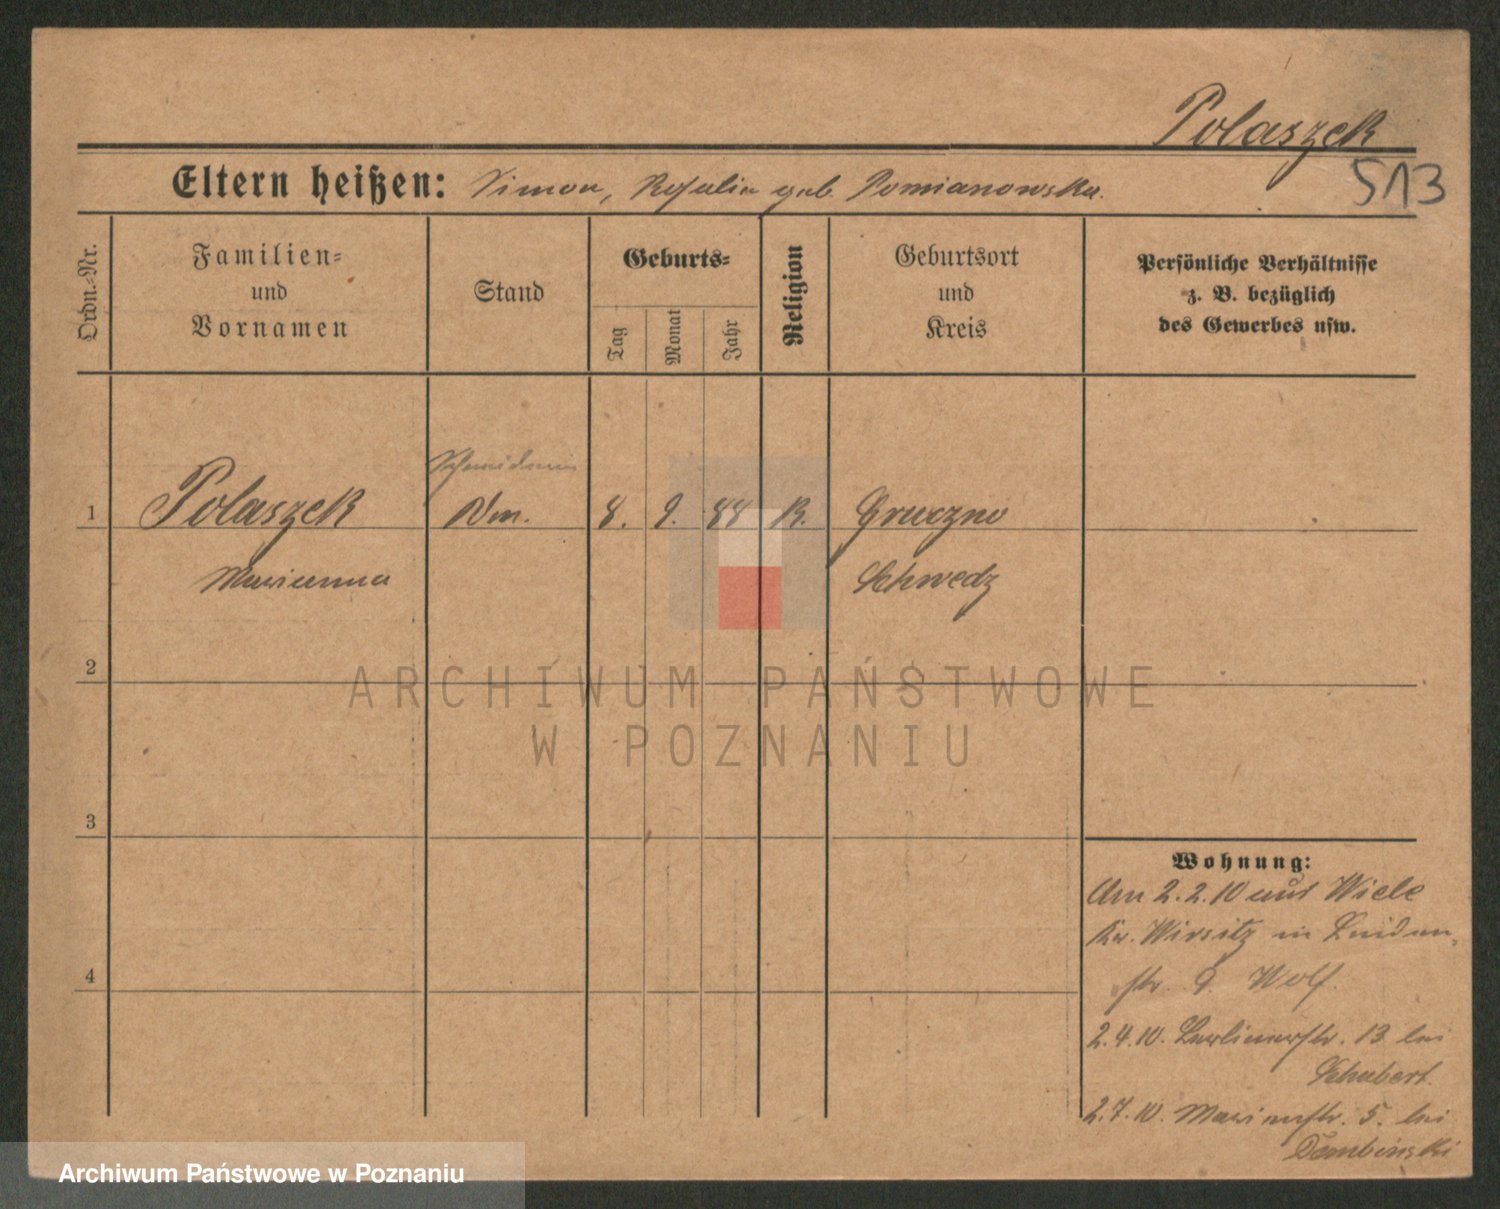 Polaszek
513
Eltern heißen: Simon, Rosalie geb. Pomianowska.
Ordn.-Nr.
Familien- und Vornamen
Stand
Geburts-
Tag
Monat
Jahr
Religion
Geburtsort und Kreis
Persönliche Verhältnisse
z. B. bezüglich
des Gewerbes usw.
Schneiderin
1 Polaszek
8. 9. 88 K. Gruczno
Marianna
Schwedz
2
ARCHIWUM PAŃSTWOWE
W POZNANIU
3
4
Wohnung:
Am 2.2.10 aus Wiele
Kr. Wirsitz in Linden-
str. 9. Wolf.
2.4.10. Berlinerstr. 13 bei
Schubert.
2.7.10. Marienstr. 5. bei
Dembinski
Archiwum Państwowe w Poznaniu